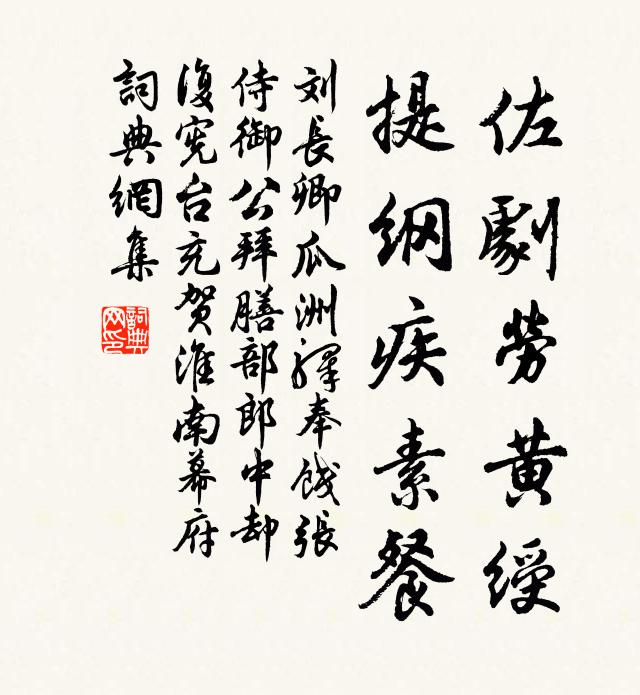 佐劇勞黃綬
提綱疾素餐
刘長卿瓜洲驛奉餞張
侍御公拜膳部郎中却
復宪台充贺淮南幕府
詞典網集
詞典
网印